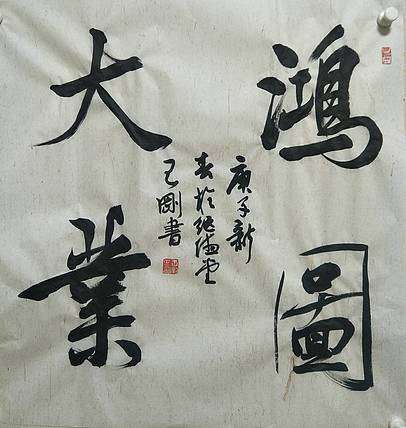 鴻圖
大業
庚子新
春於德堂
己剛書